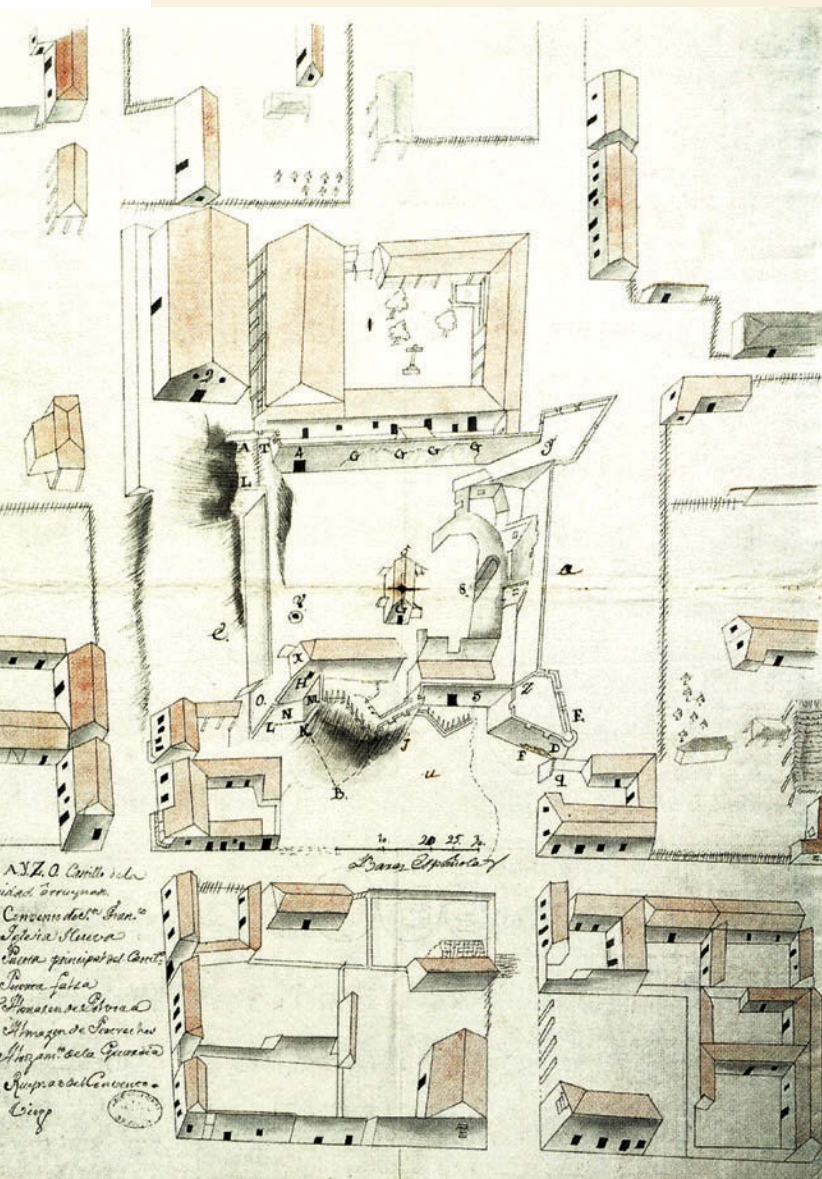 9
A T 4 G G G G
L
I
S.
a
V.
G
C.
X
H
O. M 5 Z
N
L K
E.
J
F D
B. u q
20 25.
Baras Españolas
A.Y.Z.O. Castillo de la
Convento de Sn. Fran.co
Iglesia Nueva
Puerta principal del Castil.
Puerta falsa
Almazen de Polvora
Almazen de Pertrechos
Alojam.to de la Guardia
Ruynas del Convento
Viejo